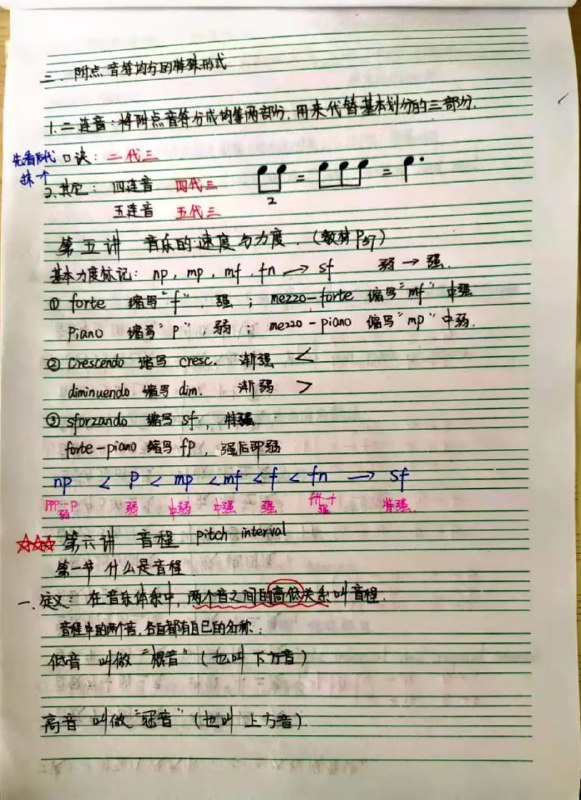 三、附点音符均分的特殊形式
1.二连音：将附点音符分成均等两部分，用来代替基本划分的三部分.
先看后代 口诀：二代三
2.其它：四连音 四代三
2 = =
五连音 五代三
第五讲 音乐的速度与力度.（教材P37）
基本力度标记：np, mp, mf, fn → sf 弱 → 强.
① forte 缩写"f", 强； mezzo-forte 缩写"mf" 中强
Piano 缩写"p", 弱； mezzo-piano 缩写"mp" 中弱.
② Crescendo 缩写 cresc. 渐强 <
diminuendo 缩写 dim. 渐弱 >
③ sforzando 缩写 sf, 特强
forte-piano 缩写 fp, 强后即弱
np < P < mp < mf < f < fn → sf
PPP…P 弱 弱 中弱 中强 强 fff…f 强 特强
☆☆☆ 第六讲 音程 pitch interval
第一节 什么是音程
一.定义：在音乐体系中，两个音之间的高低关系叫音程.
音程中的两个音，各自都有自己的名称：
低音 叫做"根音"（也叫 下方音）
高音 叫做"冠音"（也叫 上方音）